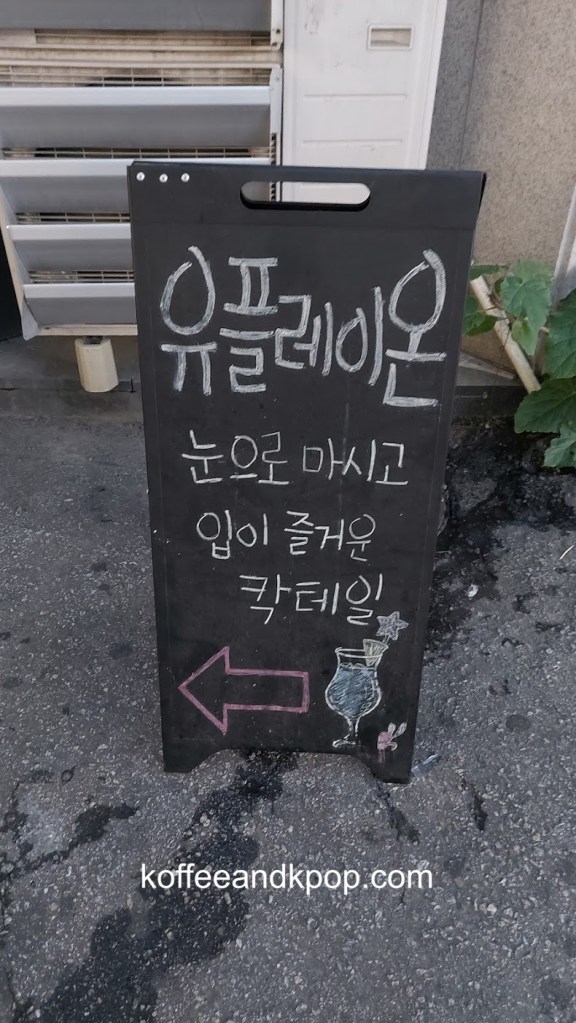 유플레이온
눈으로 마시고
입이 즐거운
칵테일
koffeeandkpop.com